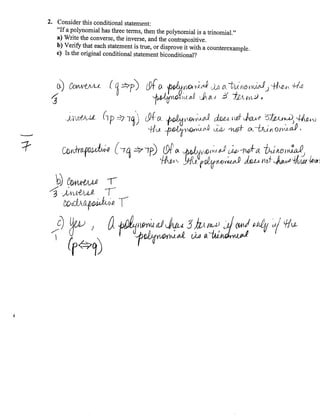 2. Consider this conditional statement:
"If a polynomial has three terms, then the polynomial is a trinomial."
a) Write the converse, the inverse, and the contrapositive.
b) Verify that each statement is true, or disprove it with a counterexample.
c) Is the original conditional statement biconditional?
a) Converse (q⇒p) If a polynomial is a trinomial, then the
3
polynomial has 3 terms.
inverse (¬p ⇒ ¬q) If a polynomial does not have 3 terms, then
the polynomial is not a trinomial.
7
Contrapositive (¬q ⇒ ¬p) If a polynomial is not a trinomial,
then the polynomial does not have three terms
b) Converse T
3 inverse T
contrapositive T
c) Yes, A polynomial has 3 terms if and only if the
1
polynomial is a trinomial
(p⇔q)